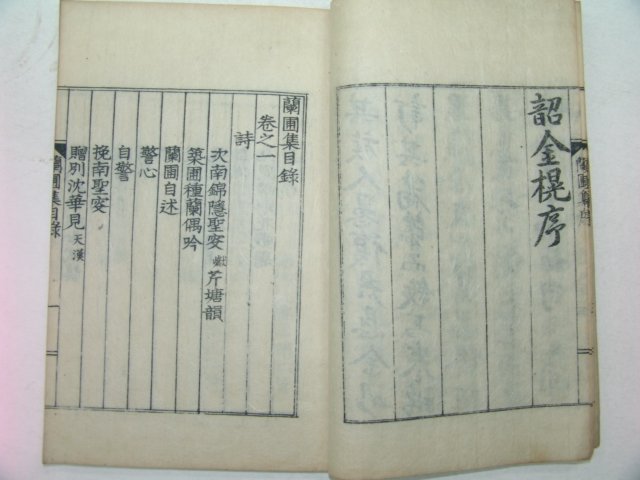 韶金榥序
蘭圃集序
蘭圃集目錄
卷之一
詩
次南錦隱聖安 獻 芹塘韻
築圃種蘭偶吟
蘭圃自述
警心
自警
挽南聖安
贈別沈華見 天漢
蘭圃集目錄